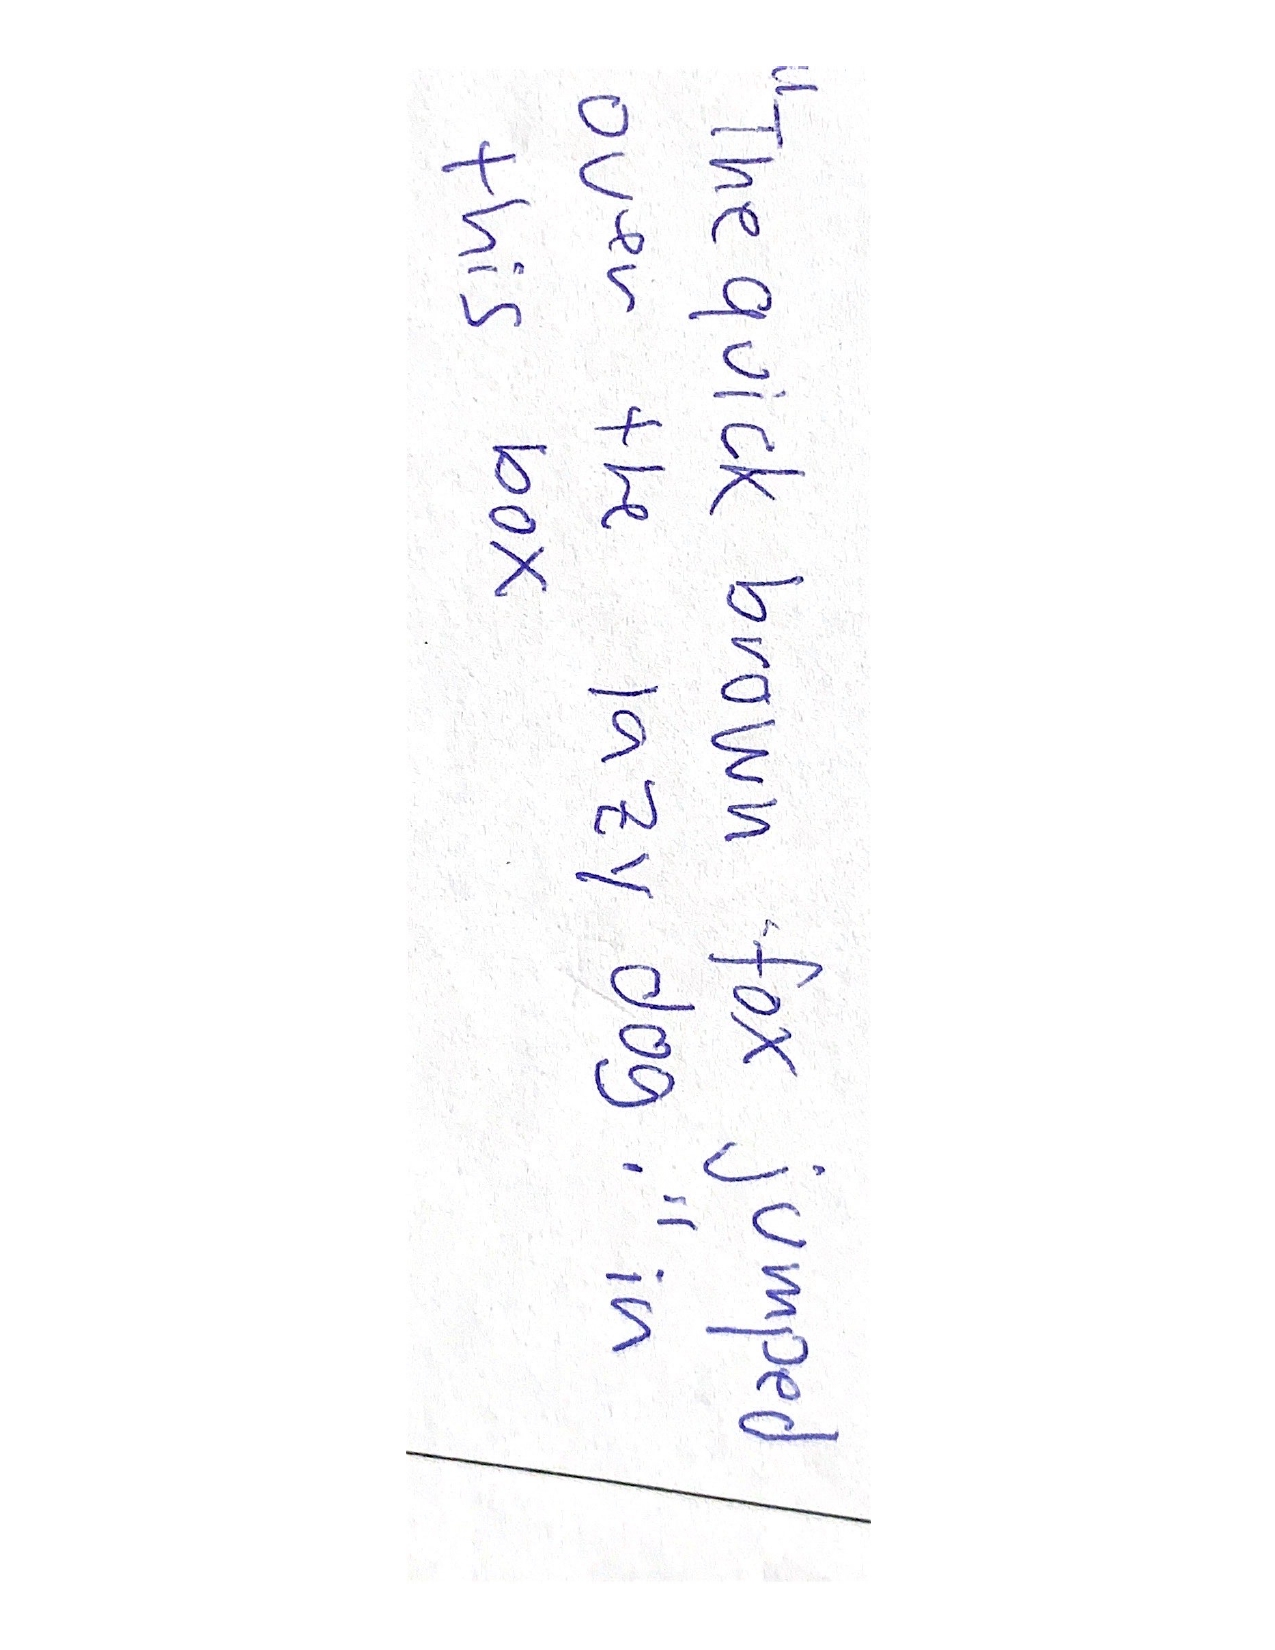 "The quick brown fox jumped
over the lazy dog." in
this box